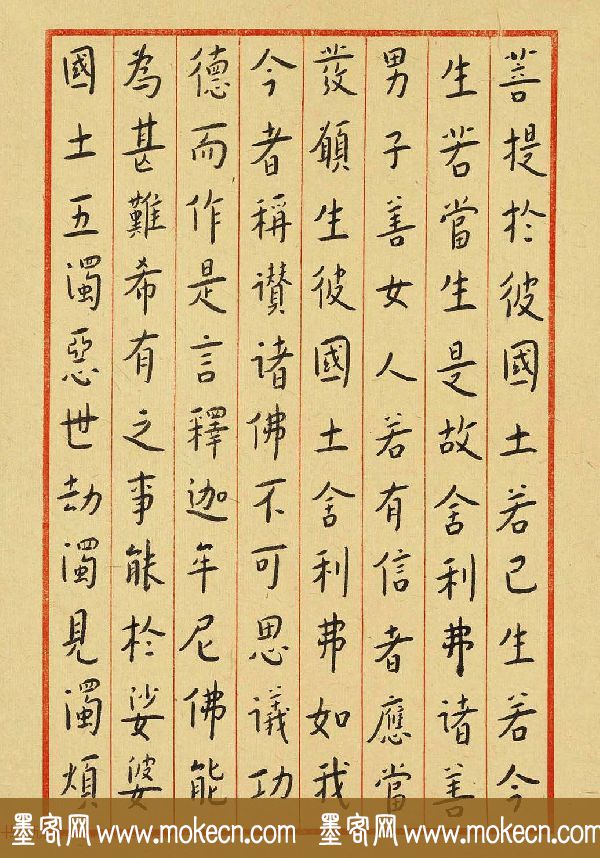 菩提於彼國土若已生若今
生若當生是故舍利弗諸善
男子善女人若有信者應當
發願生彼國土舍利弗如我
今者稱讃諸佛不可思議功
德而作是言釋迦牟尼佛能
為甚難希有之事能於娑婆
國土五濁惡世劫濁見濁煩
墨客网 www.mokecn.com 墨客网 www.mokecn.com